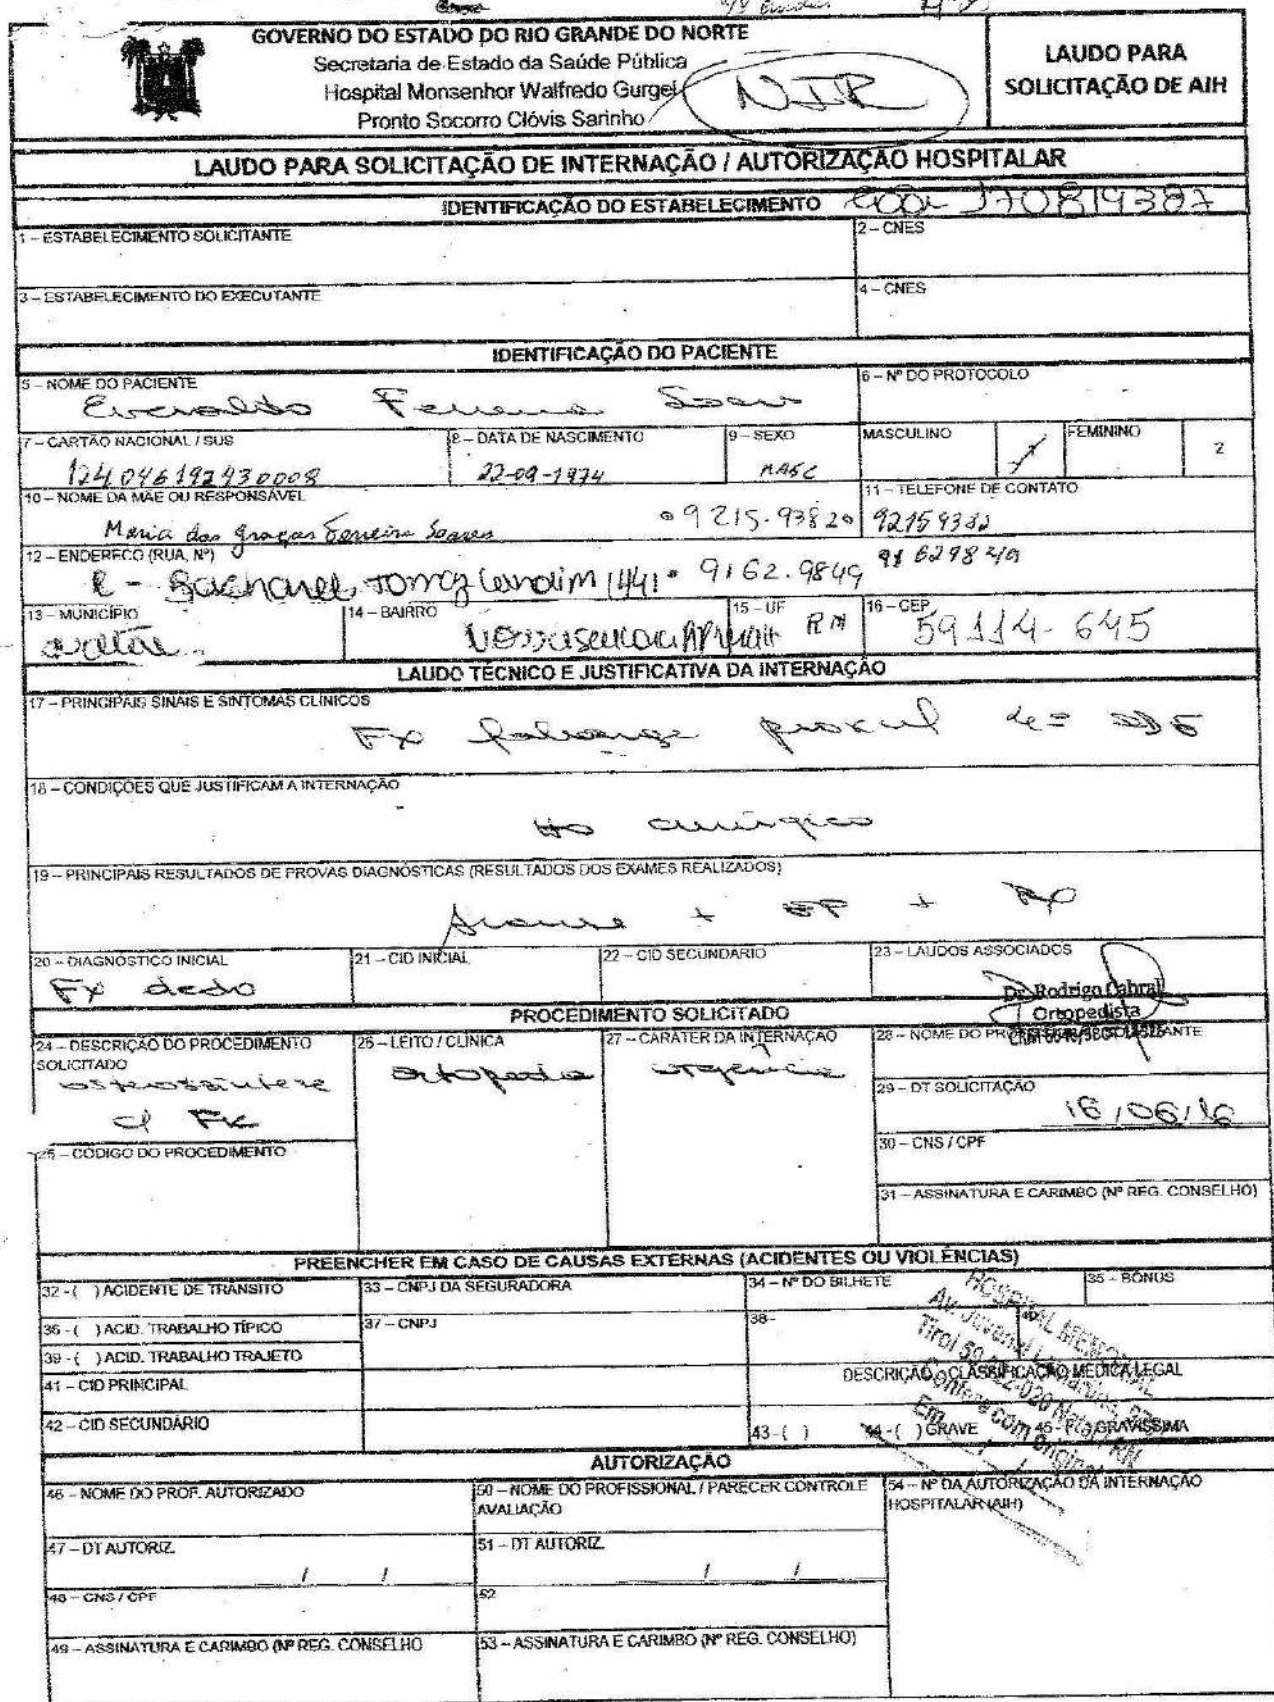 GOVERNO DO ESTADO DO RIO GRANDE DO NORTE
Secretaria de Estado da Saúde Pública
Hospital Monsenhor Walfredo Gurgel
Pronto Socorro Clóvis Sarinho
NIR
LAUDO PARA
SOLICITAÇÃO DE AIH
LAUDO PARA SOLICITAÇÃO DE INTERNAÇÃO / AUTORIZAÇÃO HOSPITALAR
IDENTIFICAÇÃO DO ESTABELECIMENTO 170819387
1 – ESTABELECIMENTO SOLICITANTE
2 – CNES
3 – ESTABELECIMENTO DO EXECUTANTE
4 – CNES
IDENTIFICAÇÃO DO PACIENTE
5 – NOME DO PACIENTE
6 – Nº DO PROTOCOLO
Everaldo Ferreira Soares
7 – CARTÃO NACIONAL / SUS
8 – DATA DE NASCIMENTO
9 – SEXO
MASCULINO
FEMININO
2
124046192930008
22-09-1974
MASC
10 – NOME DA MÃE OU RESPONSÁVEL
11 – TELEFONE DE CONTATO
Maria das Graças Ferreira Soares
9215.9382
92159382
12 – ENDEREÇO (RUA, Nº)
R - Bacharel Tomaz Landim 1441
9162.9849
13 – MUNICÍPIO
14 – BAIRRO
15 – UF
RN
16 – CEP
59114-645
LAUDO TÉCNICO E JUSTIFICATIVA DA INTERNAÇÃO
17 – PRINCIPAIS SINAIS E SINTOMAS CLÍNICOS
Fx falange proximal 4º
18 – CONDIÇÕES QUE JUSTIFICAM A INTERNAÇÃO
tto cirúrgico
19 – PRINCIPAIS RESULTADOS DE PROVAS DIAGNÓSTICAS (RESULTADOS DOS EXAMES REALIZADOS)
+ EF + Rx
20 – DIAGNÓSTICO INICIAL
21 – CID INICIAL
22 – CID SECUNDARIO
23 – LAUDOS ASSOCIADOS
Fx dedo
Dr. Rodrigo Cabral
Ortopedista
PROCEDIMENTO SOLICITADO
24 – DESCRIÇÃO DO PROCEDIMENTO
SOLICITADO
26 – LEITO / CLÍNICA
27 – CARÁTER DA INTERNAÇÃO
28 – NOME DO
osteossíntese
c/ FK
ortopedia
urgência
29 – DT SOLICITAÇÃO
16/06/16
25 – CÓDIGO DO PROCEDIMENTO
30 – CNS / CPF
31 – ASSINATURA E CARIMBO (Nº REG. CONSELHO)
PREENCHER EM CASO DE CAUSAS EXTERNAS (ACIDENTES OU VIOLÊNCIAS)
32 - ( ) ACIDENTE DE TRANSITO
33 – CNPJ DA SEGURADORA
34 – Nº DO BILHETE
35 – BÔNUS
36 - ( ) ACID. TRABALHO TÍPICO
37 – CNPJ
38-
39 - ( ) ACID. TRABALHO TRAJETO
41 – CID PRINCIPAL
DESCRIÇÃO CLASSIFICAÇÃO MÉDICA LEGAL
42 – CID SECUNDÁRIO
43 - ( )
44 - ( ) GRAVE
45 - ( ) GRAVÍSSIMA
HOSPITAL MEMORIAL
Av. Juvenal
Tirol Natal / RN
Confere com original
Em / /
AUTORIZAÇÃO
46 – NOME DO PROF. AUTORIZADO
50 – NOME DO PROFISSIONAL / PARECER CONTROLE
AVALIAÇÃO
54 – Nº DA AUTORIZAÇÃO DA INTERNAÇÃO
HOSPITALAR (AIH)
47 – DT AUTORIZ.
/ /
51 – DT AUTORIZ.
/ /
48 – CNS / CPF
52
49 – ASSINATURA E CARIMBO (Nº REG. CONSELHO
53 – ASSINATURA E CARIMBO (Nº REG. CONSELHO)